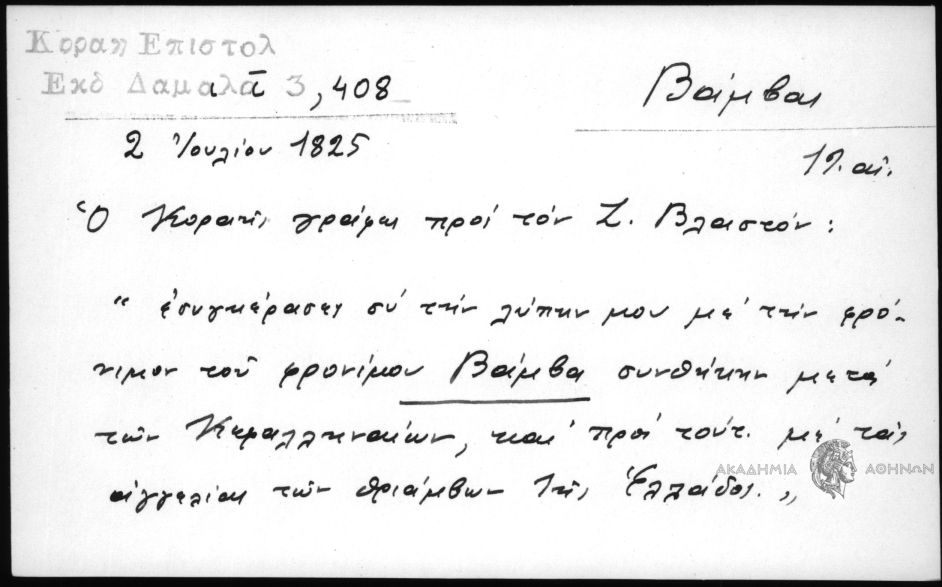 Κοραη Επιστολ
Εκδ Δαμαλᾶ 3, 408
Βάμβας
2 Ἰουλίου 1825
19. αἰ.
Ὁ Κοραῆς γράφει πρὸς τὸν Σ. Βλαστόν:
"ἐσυγκέρασες σὺ τὴν λύπην μου μὲ τὴν φρό-
νιμον τοῦ φρονίμου Βάμβα συνθήκην μετὰ
τῶν Κεφαλληναίων, καὶ πρὸς τούτ. μὲ τὰς
ἀγγελίας τῶν θριάμβων τῆς Ἑλλάδος."
ΑΚΑΔΗΜΙΑ ΑΘΗΝΩΝ